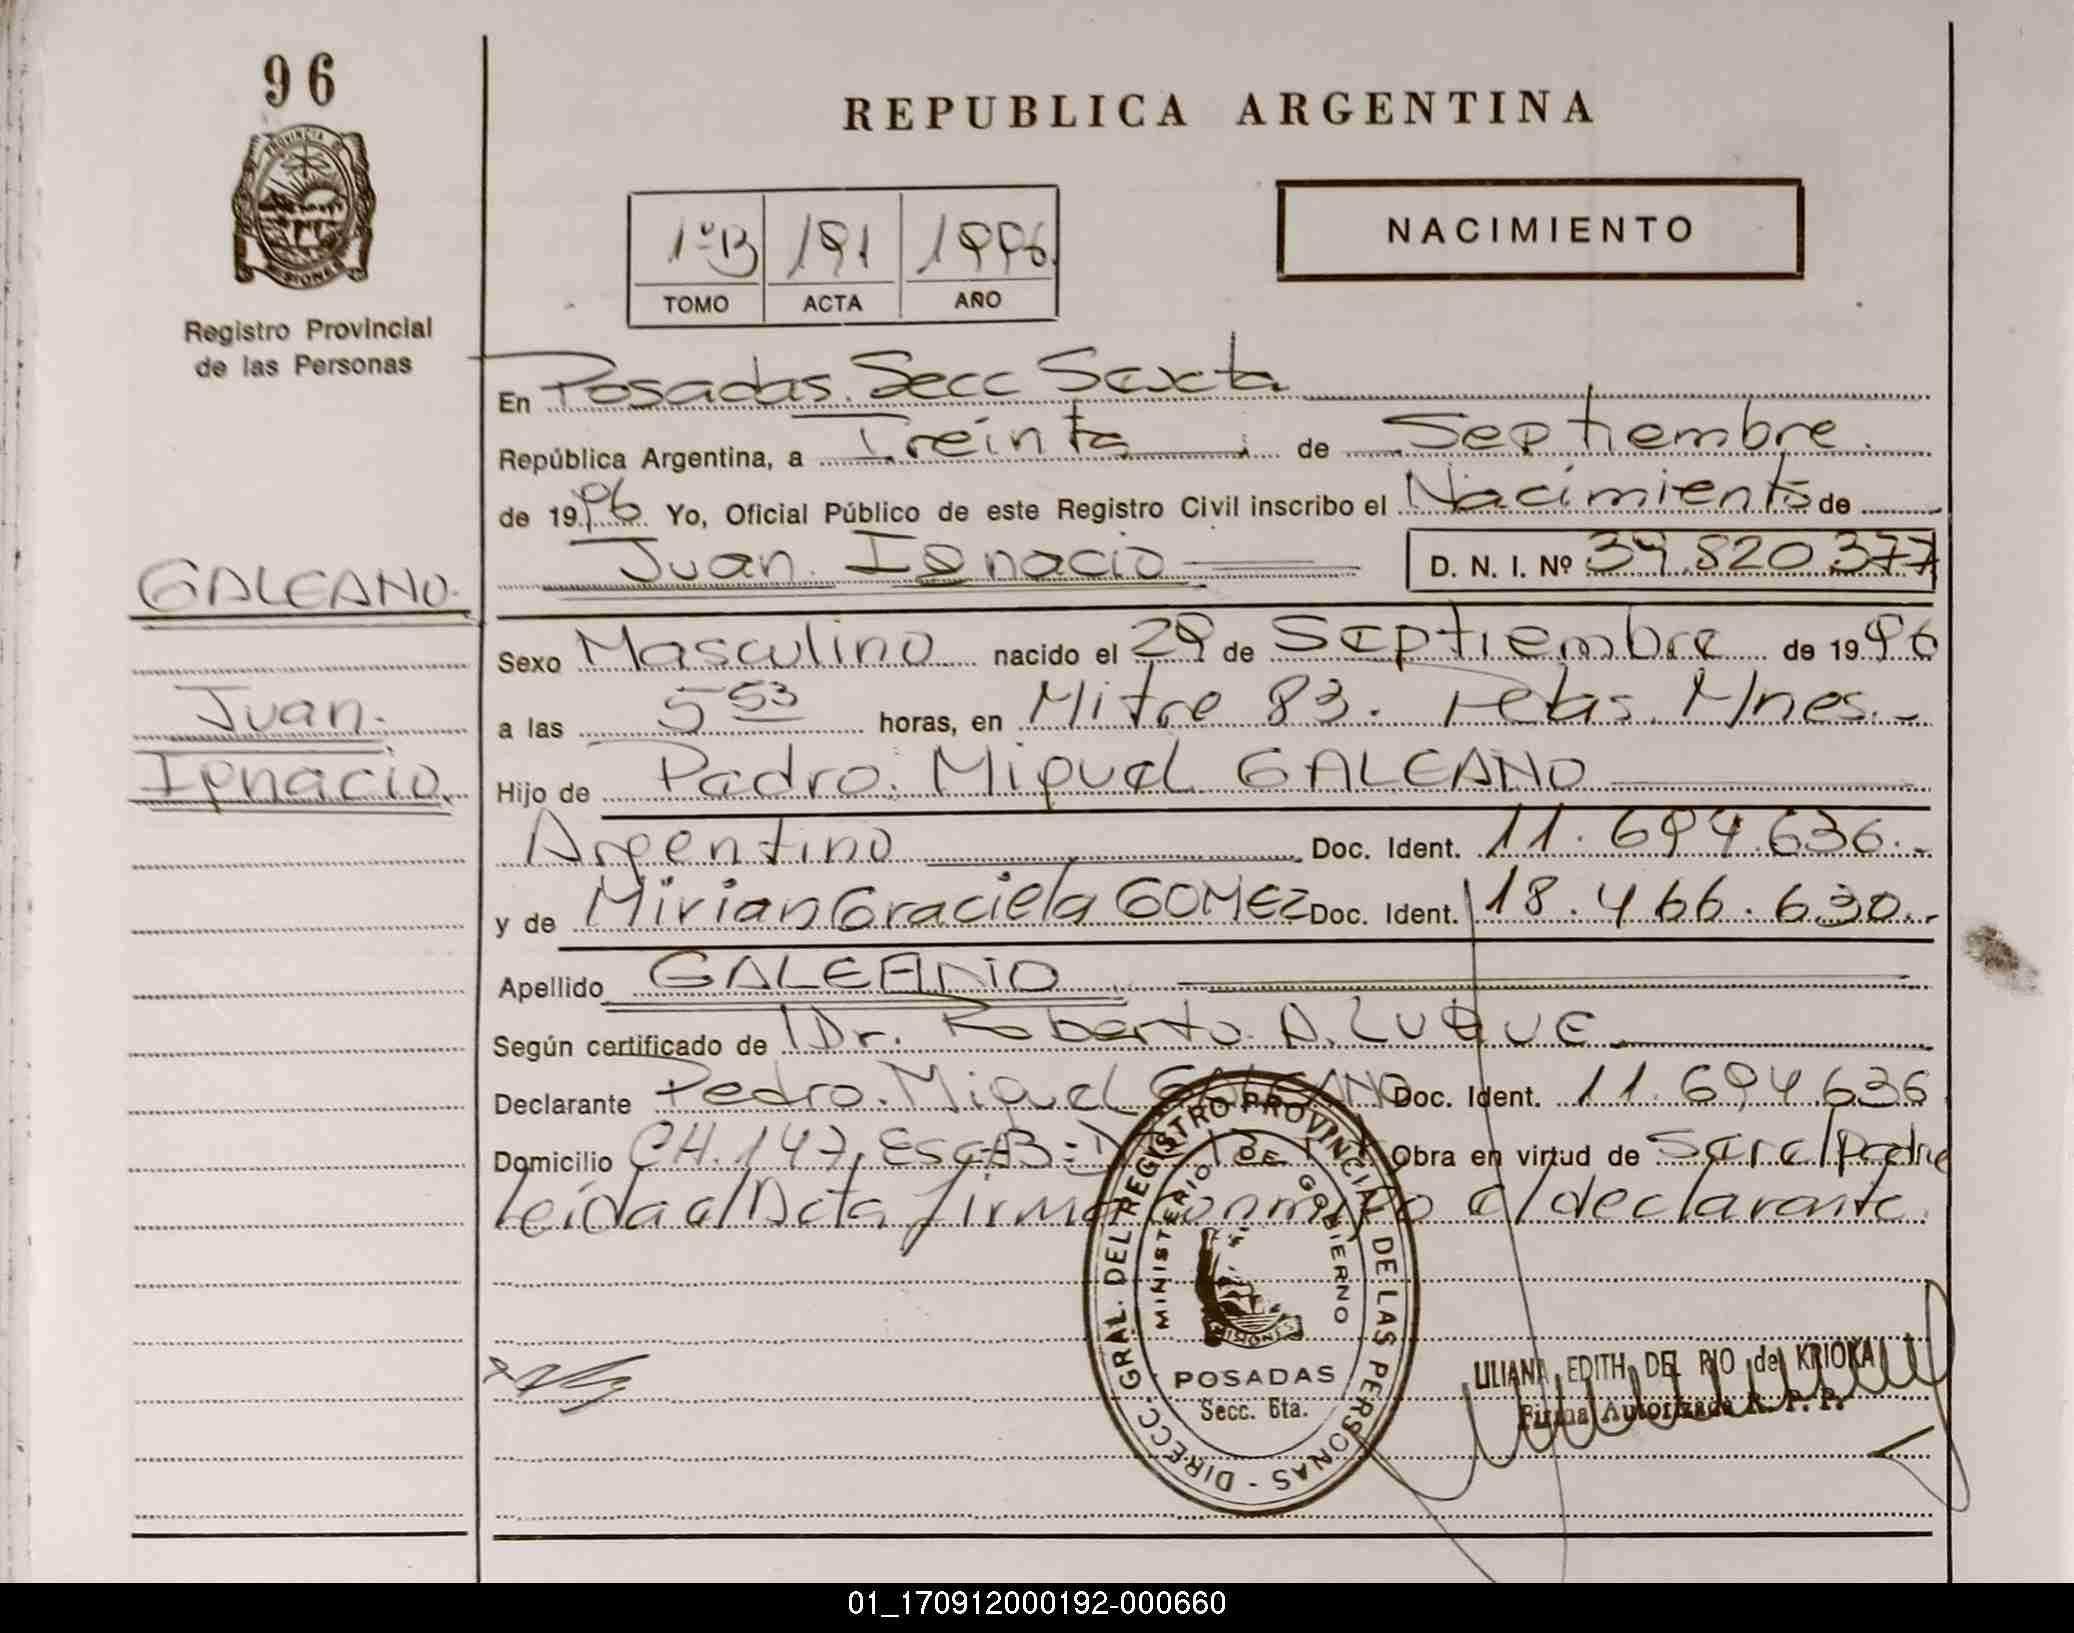 96
REPUBLICA ARGENTINA
PROVINCIA DE
MISIONES
Registro Provincial
de las Personas
1ºB 191 1996
TOMO ACTA AÑO
NACIMIENTO
En Posadas. Secc Sexta
República Argentina, a Treinta de Septiembre.
de 1996 Yo, Oficial Público de este Registro Civil inscribo el Nacimiento de
Juan Ignacio D. N. I. Nº 39.820.377
GALEANO.
Juan.
Ignacio.
Sexo Masculino nacido el 29 de Septiembre de 1996
a las 5 53 horas, en Mitre 83. Pdas. Mnes.-
Hijo de Pedro. Miguel GALEANO
Argentino Doc. Ident. 11.694.636.-
y de Mirian Graciela GOMEZ Doc. Ident. 18.466.630.-
Apellido GALEANO
Según certificado de Dr. Roberto A. LUQUE
Declarante Pedro. Miguel GALEANO Doc. Ident. 11.694.636
Domicilio CH.147, Esc Obra en virtud de ser el Padre
leida el Acta firma conmigo el declarante.
DIRECC. GRAL. DEL REGISTRO PROVINCIAL DE LAS PERSONAS
MINISTERIO DE GOBIERNO
MISIONES
POSADAS
Secc. 6ta.
LILIANA EDITH DEL RIO de KRIOKA
Firma Autorizada R. P. P.
01_170912000192-000660